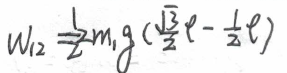 W₁₂ = \frac{1}{2} m₁ g (\frac{\sqrt{3}}{2} ℓ - \frac{1}{2} ℓ)